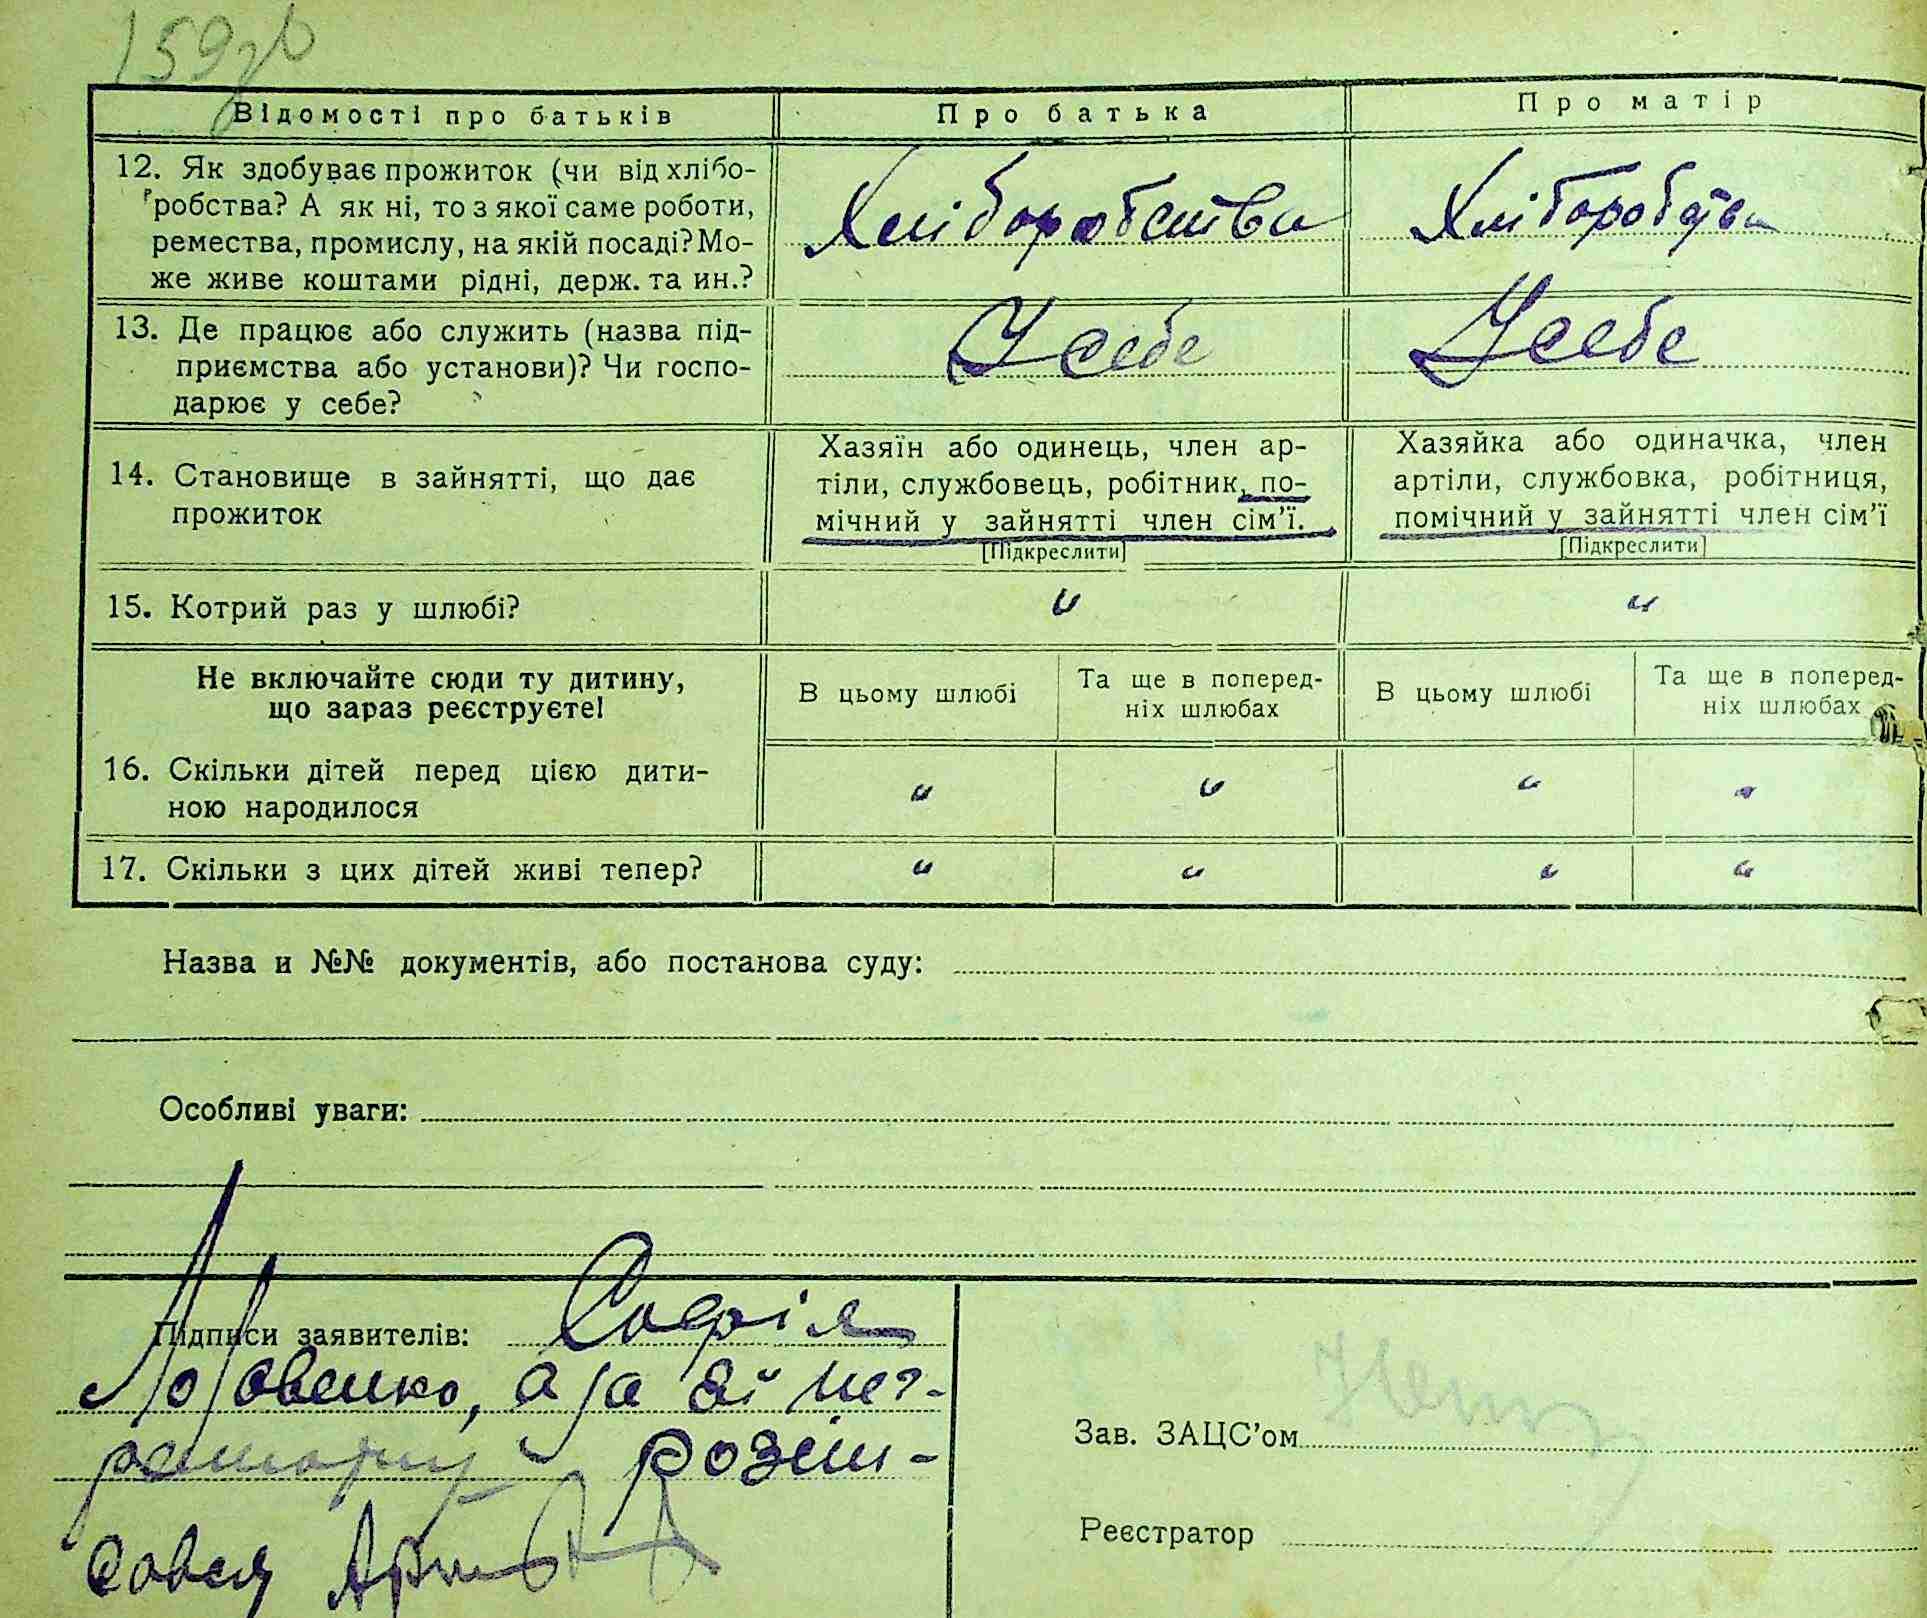 159зв
Відомості про батьків
Про батька
Про матір
12. Як здобуває прожиток (чи від хлібо-
робства? А як ні, то з якої саме роботи,
ремества, промислу, на якій посаді? Мо-
же живе коштами рідні, держ. та ин.?
Хліборобства
Хліборобства
13. Де працює або служить (назва під-
приємства або установи)? Чи госпо-
дарює у себе?
У себе
У себе
14. Становище в зайнятті, що дає
прожиток
Хазяїн або одинець, член ар-
тіли, службовець, робітник, по-
мічний у зайнятті член сім'ї.
[Підкреслити]
Хазяйка або одиначка, член
артіли, службовка, робітниця,
помічний у зайнятті член сім'ї
[Підкреслити]
15. Котрий раз у шлюбі?
"
"
Не включайте сюди ту дитину,
що зараз реєструєте!
В цьому шлюбі
Та ще в поперед-
ніх шлюбах
В цьому шлюбі
Та ще в поперед-
ніх шлюбах
16. Скільки дітей перед цією дити-
ною народилося
" " " "
17. Скільки з цих дітей живі тепер?
" " " "
Назва и №№ документів, або постанова суду:
Особливі уваги:
Підписи заявителів: Софія
Лозовенко, а за її не-
розпи-
Зав. ЗАЦС'ом
Реєстратор